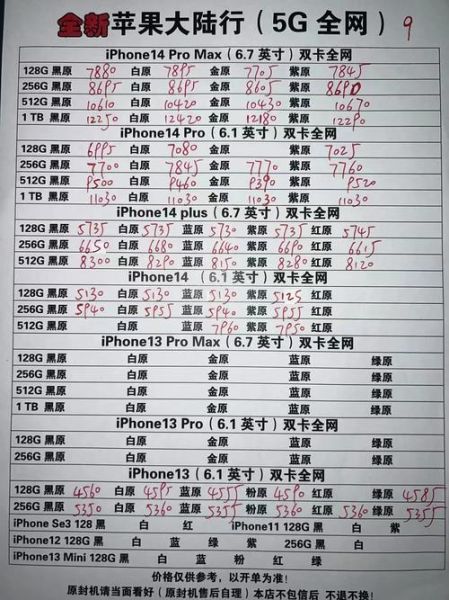 全新苹果大陆行（5G 全网） 9
iPhone14 Pro Max（6.7 英寸）双卡全网
128G 黑原 7880 白原 7895 金原 7705 紫原 7845
256G 黑原 8695 白原 8695 金原 8605 紫原 8690
512G 黑原 10610 白原 10420 金原 10430 紫原 10670
1 TB 黑原 12250 白原 12420 金原 12180 紫原 12290
iPhone14 Pro（6.1 英寸）双卡全网
128G 黑原 6995 白原 7080 金原 紫原 7025
256G 黑原 7700 白原 7845 金原 7770 紫原 7760
512G 黑原 9500 白原 9460 金原 9390 紫原 9520
1 TB 黑原 11030 白原 11030 金原 11030 紫原 11030
iPhone14 plus（6.7 英寸）双卡全网
128G 黑原 5735 白原 5735 蓝原 5730 紫原 5735 红原 5745
256G 黑原 6650 白原 6680 蓝原 6640 紫原 6690 红原 6615
512G 黑原 8300 白原 8290 蓝原 8150 紫原 8280 红原 8120
iPhone14 （6.1 英寸）双卡全网
128G 黑原 5130 白原 5130 蓝原 5130 紫原 5125 红原
256G 黑原 5940 白原 5955 蓝原 5940 紫原 5955 红原
512G 黑原 白原 蓝原 7960 紫原 7950 红原
iPhone13 Pro Max（6.7 英寸）双卡全网
128G 黑原 白原 金原 蓝原 绿原
256G 黑原 白原 金原 蓝原 绿原
512G 黑原 白原 金原 蓝原 绿原
1 TB 黑原 白原 金原 蓝原 绿原
iPhone13 Pro（6.1 英寸）双卡全网
128G 黑原 白原 金原 蓝原 绿原
256G 黑原 白原 金原 蓝原 绿原
iPhone13（6.1 英寸）双卡全网
128G 黑原 4560 白原 4595 蓝原 4555 粉原 4590 红原 绿原 4585
256G 黑原 5350 白原 5360 蓝原 5355 粉原 5360 红原 5360 绿原 5355
iPhone Se3 128 黑 白 红 iPhone11 128G 黑 白 紫
iPhone12 128G 黑 白 蓝 绿 紫 256G 黑 白
iPhone13 Mini 128G 黑 白 蓝 粉 红 绿
价格仅供参考，以开单为准！
原封机请当面看好（原封机售后自理）本店不包信后 不退不换！